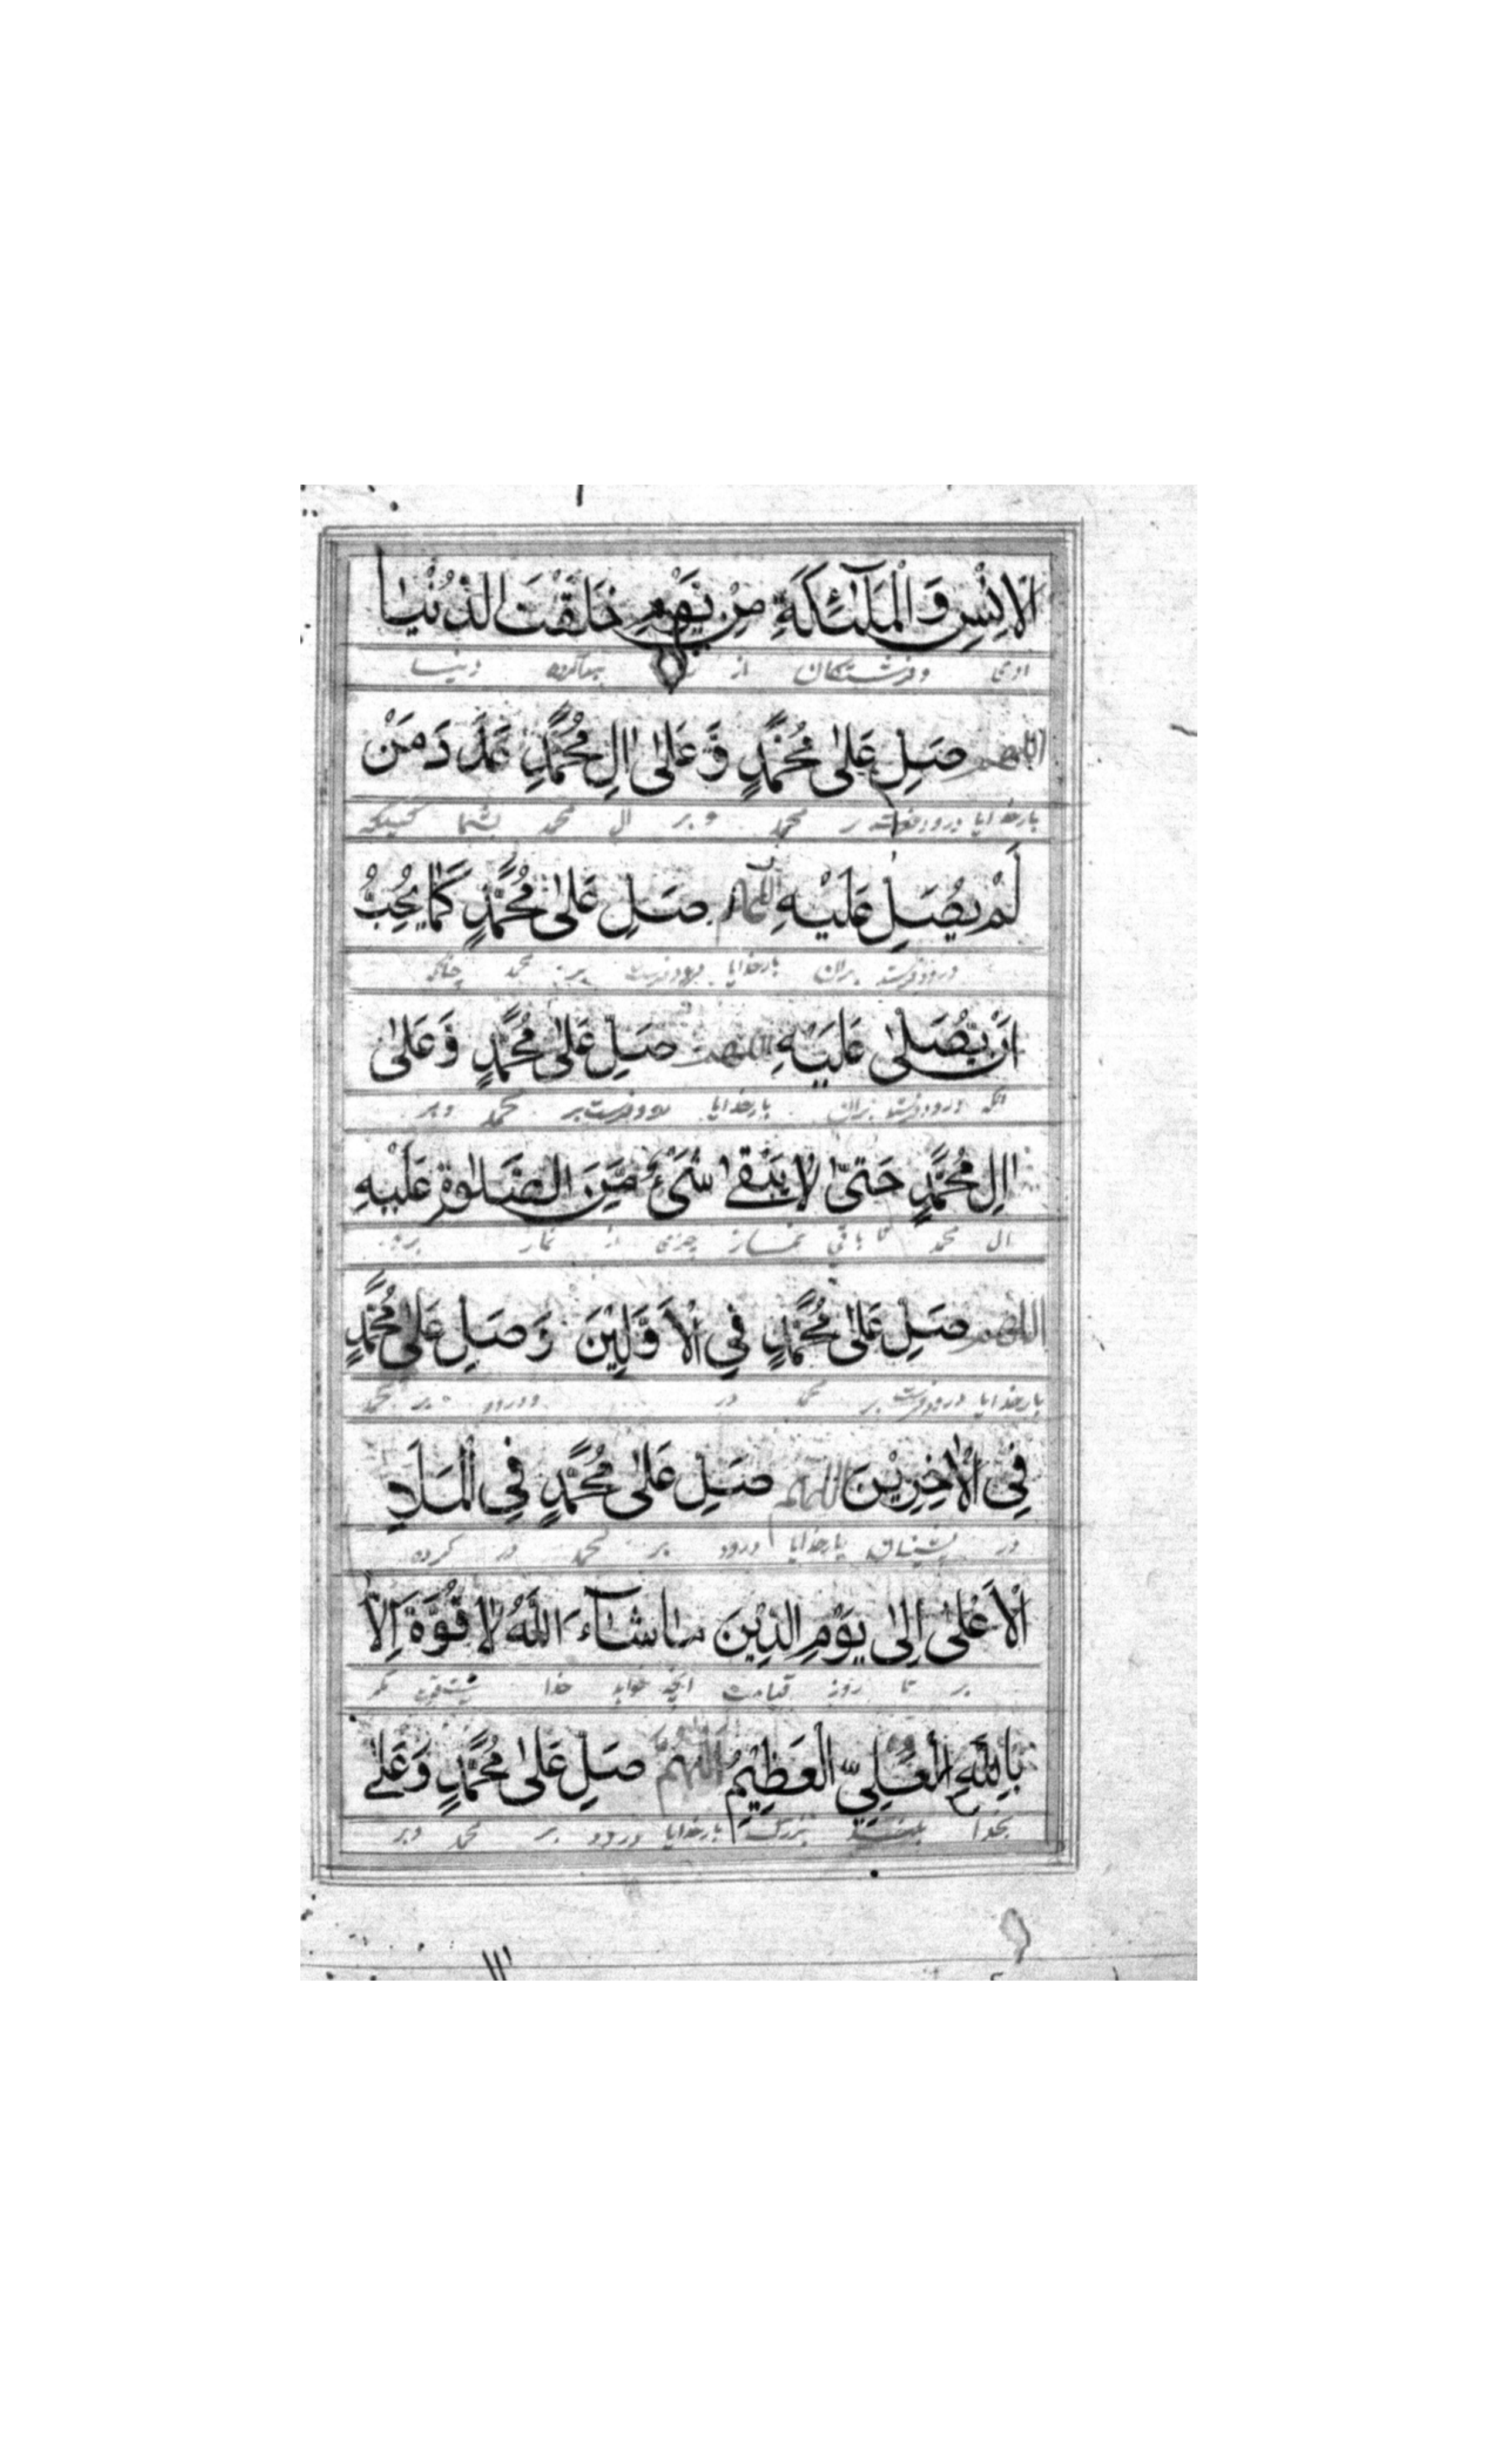 الْاِنْسِ وَ الْمَلٰٓئِكَةِ مِنْ يَّوْمِ خَلَقْتَ الدُّنْيَا
ادمی وفرشتكان از پیداکرده دنیا
اللهم صَلِّ عَلٰى مُحَمَّدٍ وَّ عَلٰى اٰلِ مُحَمَّدٍ عَدَدَ مَنْ
بارخدایا درود بر محمد و بر ال محمد بشمار کسیکه
لَمْ يُصَلِّ عَلَيْهِ اللهم صَلِّ عَلٰى مُحَمَّدٍ كَمَا يُحِبُّ
درود فرستد بران بارخدایا درود فرست بر محمد چنانکه
اَنْ يُّصَلّٰى عَلَيْهِ اللهم صَلِّ عَلٰى مُحَمَّدٍ وَّ عَلٰى
انکه درود فرستد بران بارخدایا درود فرست بر محمد وبر
اٰلِ مُحَمَّدٍ حَتّٰى لَا يَبْقٰى شَىْءٌ مِّنَ الصَّلٰوةِ عَلَيْهِ
ال محمد تا باقی نماند چیزی از نماز بر
اللهم صَلِّ عَلٰى مُحَمَّدٍ فِى الْاَوَّلِيْنَ وَ صَلِّ عَلٰى مُحَمَّدٍ
بارخدایا درود فرست بر محمد در ودرود بر محمد
فِى الْاٰخِرِيْنَ اللهم صَلِّ عَلٰى مُحَمَّدٍ فِى الْمَلَاِ
در بارخدایا درود بر محمد در کروه
الْاَعْلٰى اِلٰى يَوْمِ الدِّيْنِ مَا شَآءَ اللّٰهُ لَا قُوَّةَ اِلَّا
بر تا روز قیامت انچه خواهد خدا نیست قوت مکر
بِاللّٰهِ الْعَلِىِّ الْعَظِيْمِ اللهم صَلِّ عَلٰى مُحَمَّدٍ وَ عَلٰى
بخدا بلند بزرك بارخدایا درود بر محمد وبر